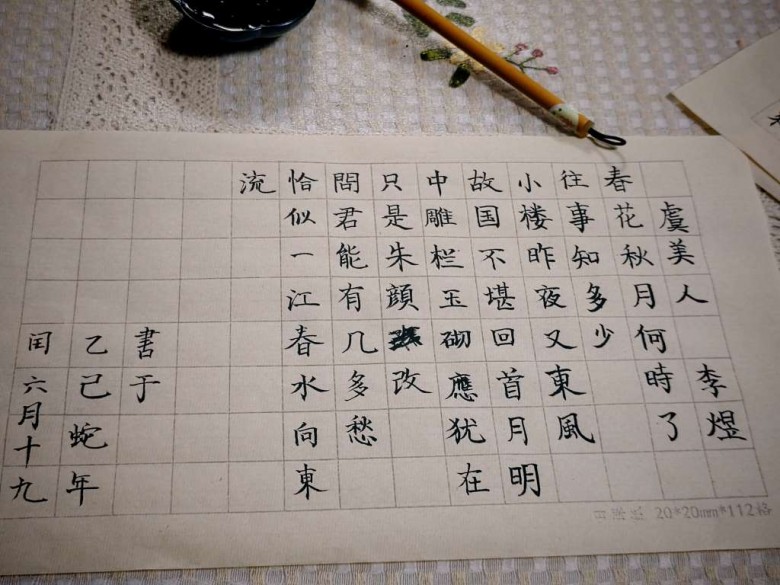 虞美人 李煜
春花秋月何時了
往事知多少
小楼昨夜又東風
故国不堪回首月明
中雕栏玉砌應犹在
只是朱顔改
問君能有几多愁
恰似一江春水向東
流
書于
乙己蛇年
闰六月十九
20*20mm*112格